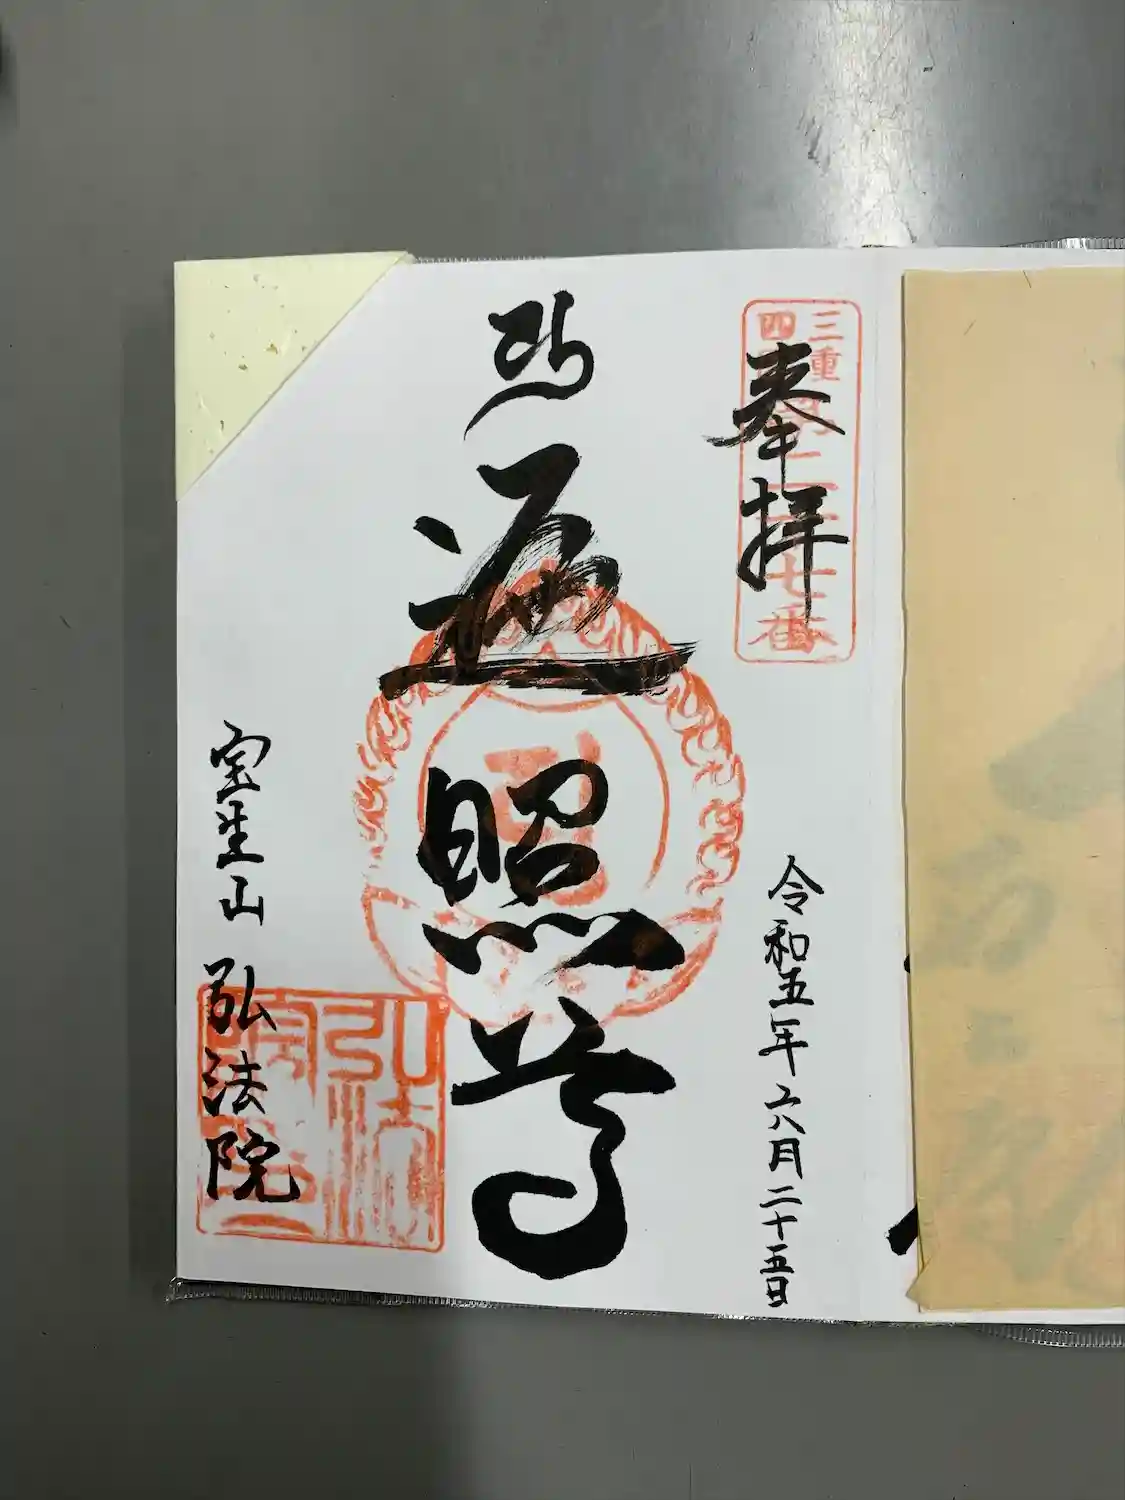 奉拝
三重
四国
第二十七番
令和五年六月二十五日
遍照尊
室生山
弘法院
弘法
院